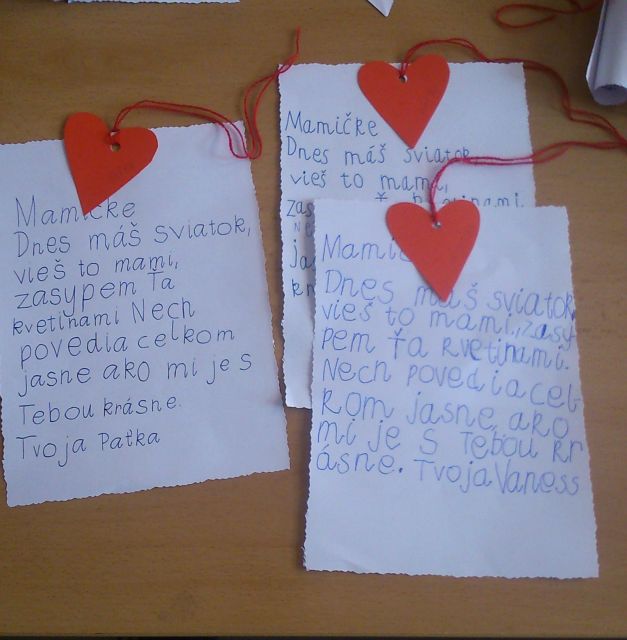 Mamičke
Dnes máš sviatok,
vieš to mami,
zasypem Ťa
kvetinami Nech
povedia celkom
jasne ako mi je s
Tebou krásne.
Tvoja Paťka
Mamičke
Dnes máš sviatok
vieš to mami,
Dnes máš sviatok
vieš to mami,zasy-
pem Ťa kvetinami.
Nech povedia cel-
kom jasne, ako
mi je s Tebou kr
ásne. Tvoja Vaness